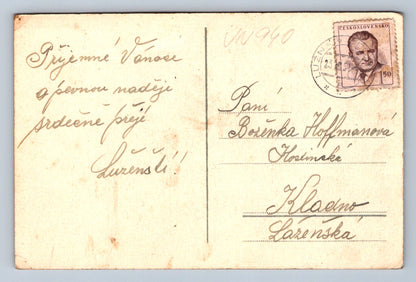 Příjemné Vánoce
a pevnou naději
srdečně přejí
Luženští!
VN 940
ČESKOSLOVENSKO
1'50
Paní
Boženka Hoffmanová
Hostinská
Kladno
Lázeňská